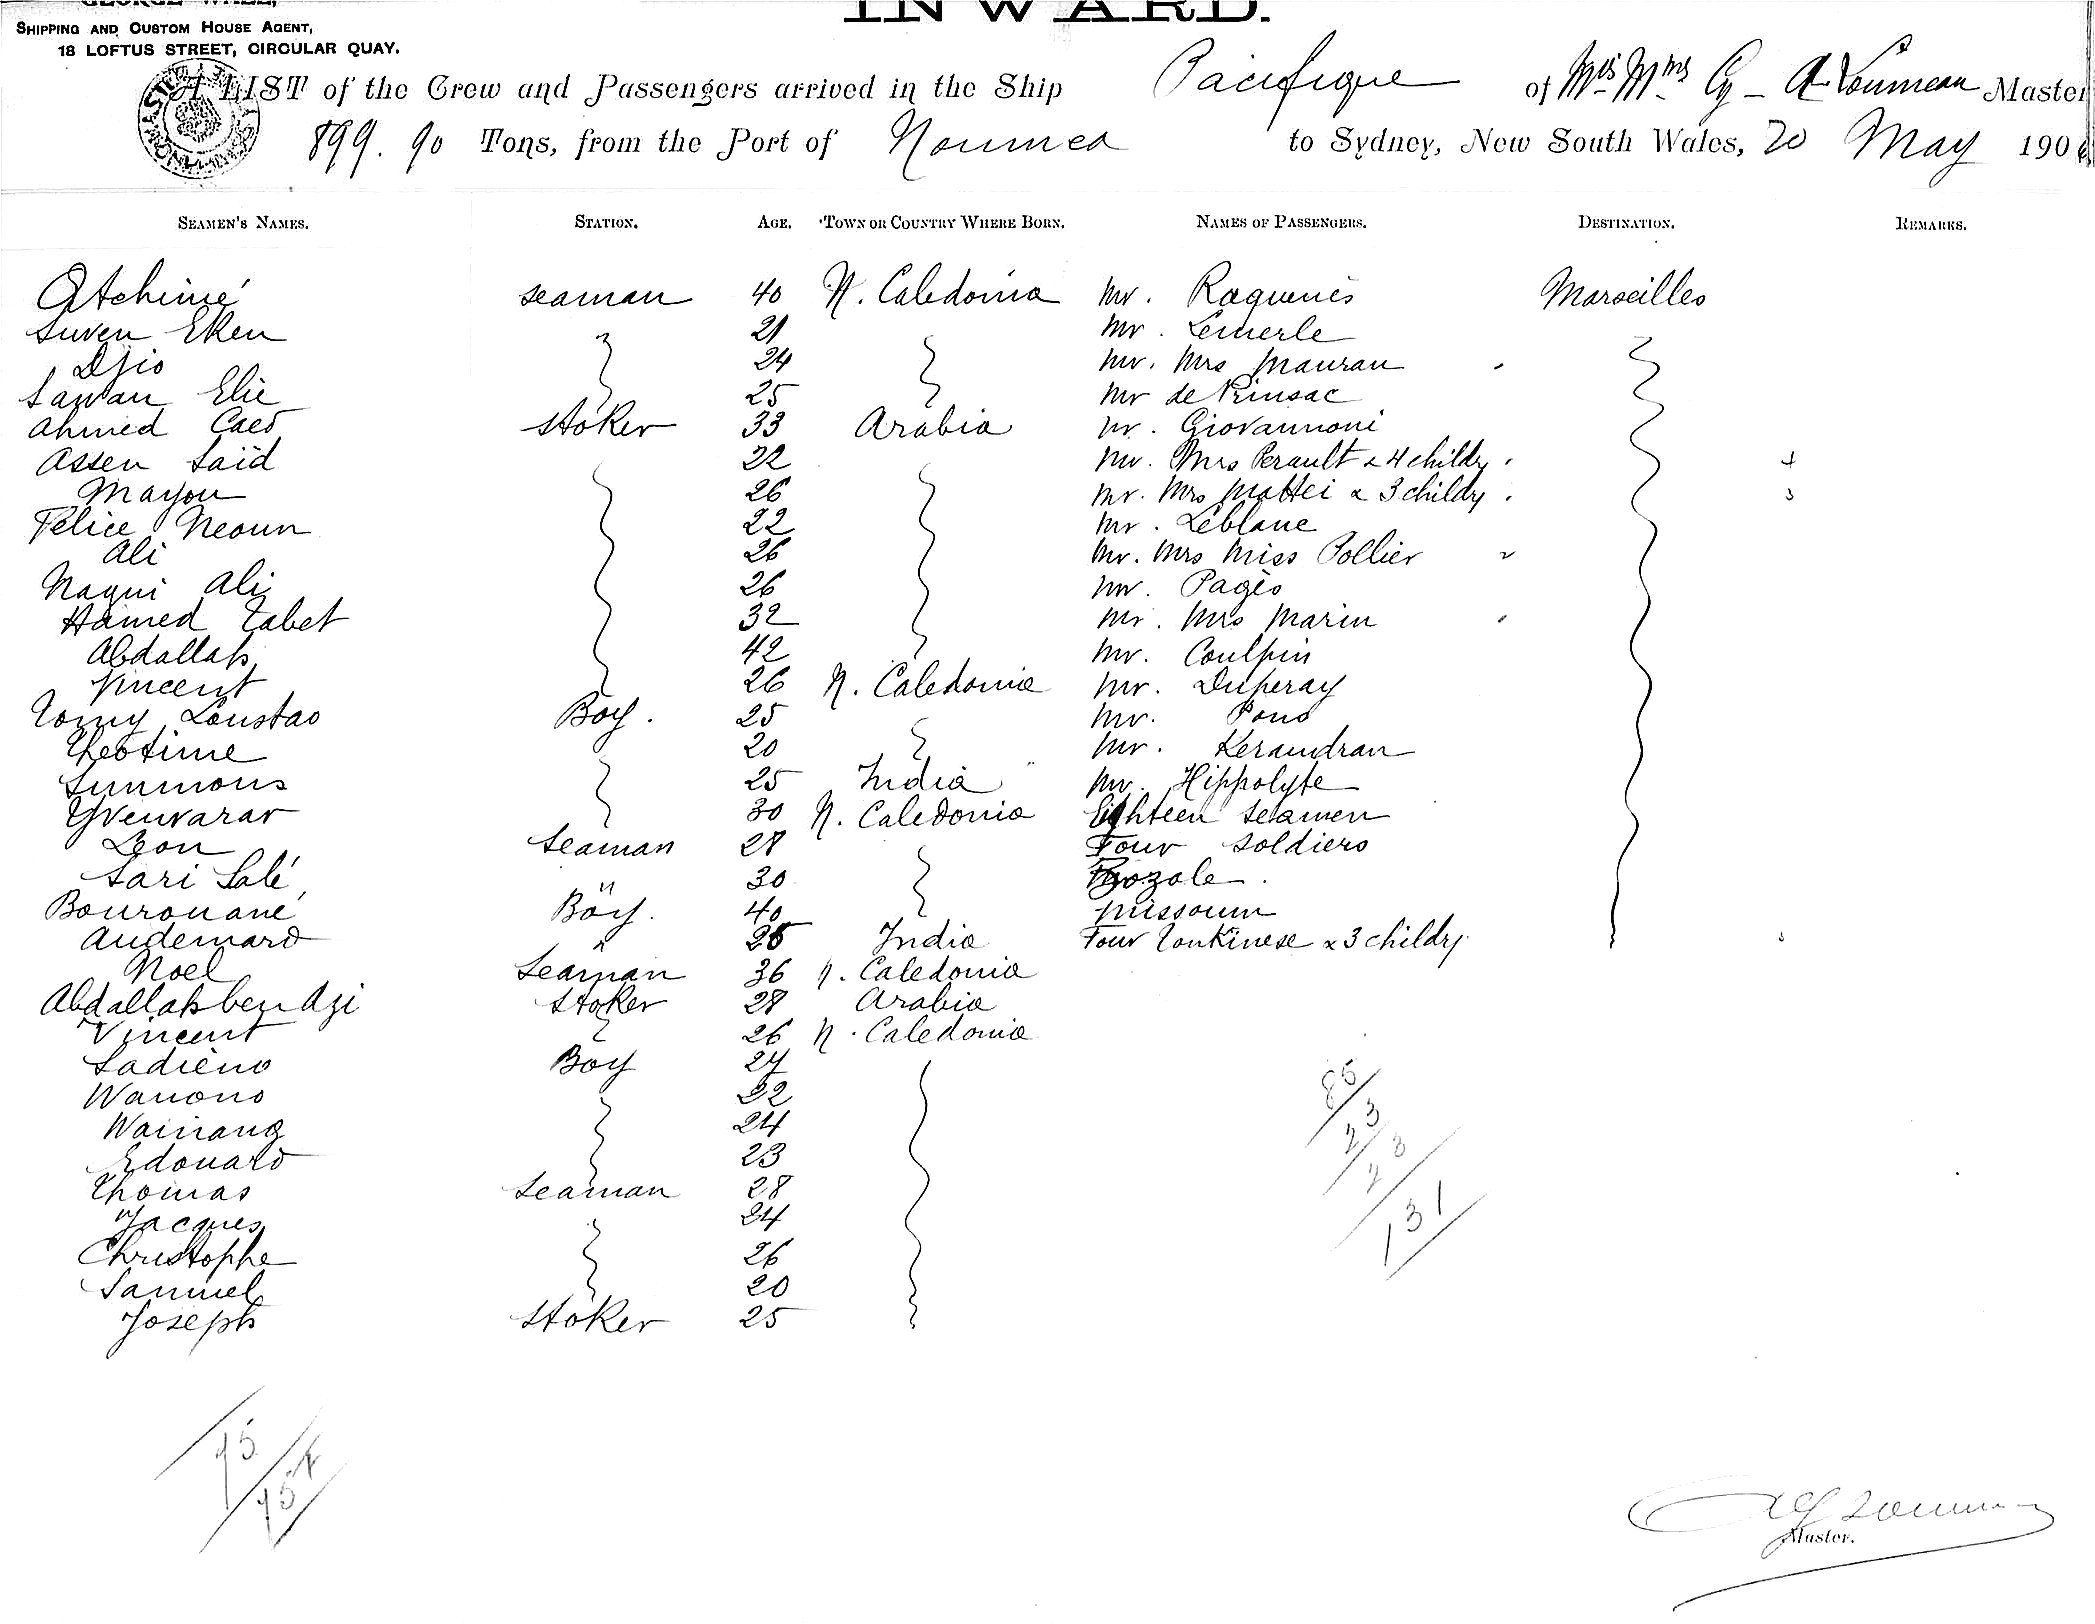 GEORGE WALL,
SHIPPING AND CUSTOM HOUSE AGENT,
18 LOFTUS STREET, CIRCULAR QUAY.
INWARD.
A LIST of the Crew and Passengers arrived in the Ship Pacifique of Mis Mms Cy - Master
899.90 Tons, from the Port of Noumea to Sydney, New South Wales, 20 May 190
SEAMEN'S NAMES. STATION. AGE. TOWN OR COUNTRY WHERE BORN. NAMES OF PASSENGERS. DESTINATION. REMARKS.
Atchimé seaman 40 N. Caledonia Mr. Raguenès Marseilles
Suven Eken 21 Mr. Lemerle
Djio 24 Mr. Mrs Mauran
Sawan Elie 25 Mr de
Ahmed Caed Stoker 33 Arabia Mr. Giovannoni
Assen Saïd 22 Mr. Mrs Perault & 4 childr. 4
Mayou 26 Mr. Mrs Mattei & 3 childr. 3
Felice Neoun 22 Mr. Leblanc
Ali 26 Mr. Mrs Miss Pollier
Naqui Ali 26 Mr. Pagès
Hamed Tabet 32 Mr. Mrs Marin
Abdallah 42 Mr. Coulpin
Vincent 26 N. Caledonia Mr. Duperay
Tomy Loustao Boy. 25 Mr. Pons
Theotime 20 Mr. Keraudran
Simmons 25 India Mr. Hippolyte
Yvenvarar 30 N. Caledonia Eighteen seamen
Leon Seaman 28 Four soldiers
Sari Salé 30
Bourouané " Boy. 40 Missoum
Audemard 26 India Four Tonkinese & 3 childr.
Noel Seaman 36 N. Caledonia
Abdallah ben Azi Stoker 28 Arabia
Vincent 26 N. Caledonia
Ladieno Boy 24
Wanono 22
Wainang 24
Edouard 23
Thomas Seaman 28
Jacques 24
Christophe 26
Samuel 20
Joseph Stoker 25
131
Master.